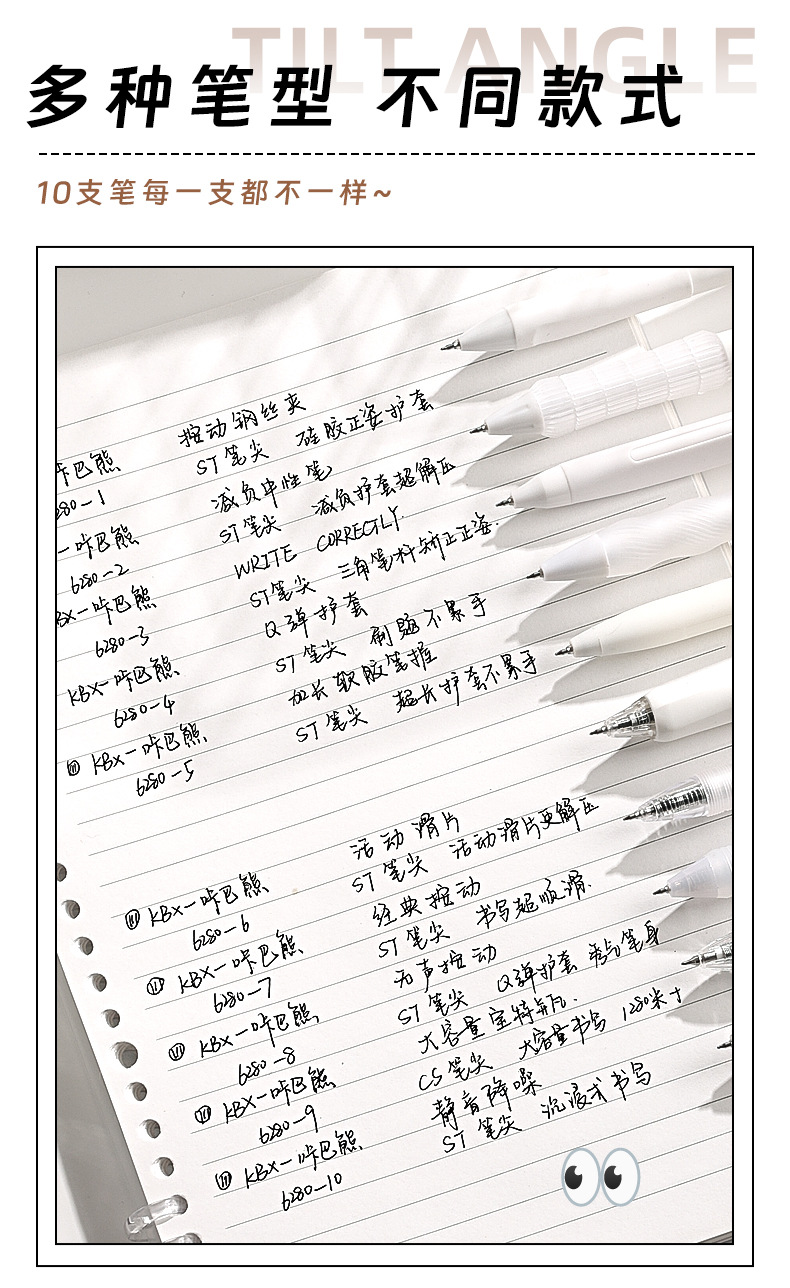 TILT ANGLE
多种笔型 不同款式
10支笔每一支都不一样~
按动钢丝夹
卡巴熊 ST笔尖 硅胶正姿护套
280-1 减负中性笔
-咔巴熊 ST笔尖 减负护套超解压
6280-2 WRITE CORRECTLY
BX-咔巴熊 ST笔尖 三角笔杆矫正正姿.
6280-3 Q弹护套
KBX-咔巴熊 ST笔尖 刷题不累手
6280-4 加长软胶笔握
KBX-咔巴熊 ST笔尖 超长护套不累手
6280-5
活动滑片
KBX-咔巴熊 ST笔尖 活动滑片更解压
6280-6 经典按动
KBX-咔巴熊 ST笔尖 书写超顺滑.
6280-7 无声按动
KBX-咔巴熊 ST笔尖 Q弹护套 笔身
6280-8 大容量宝特瓶.
KBX-咔巴熊 CS笔尖 大容量书写 1280米+
6280-9 静音降噪
KBX-咔巴熊 ST笔尖 沉浸式书写
6280-10